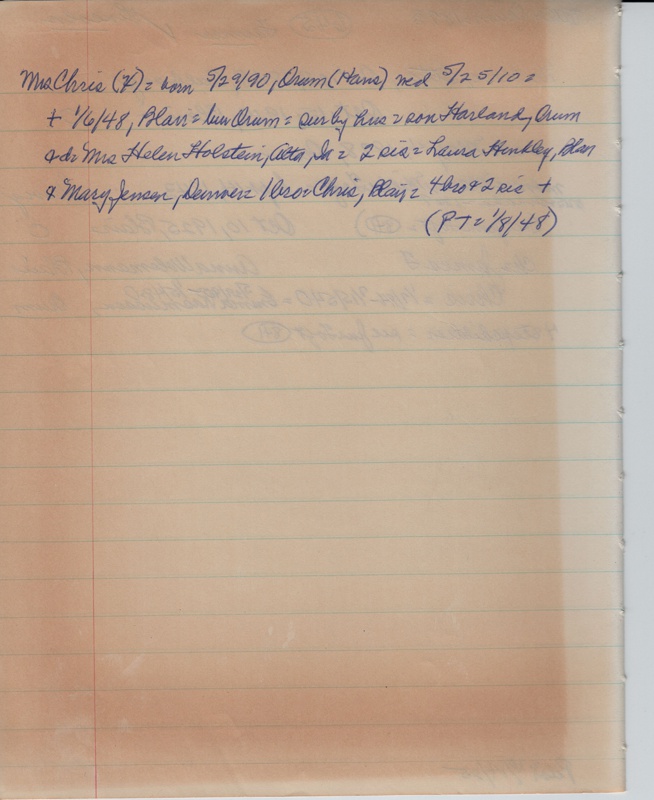 Mrs Chris (K) = born 5/29/90, Orum (Hans) med 5/25/10 =
+ 1/6/48, Blair = bur Orum = sur by hus = son Harland, Orum
& dr Mrs Helen Holstein, Alta, Ia = 2 sis = Laura Henkley, Blair
& Mary Jensen, Denver = 1 bro = Chris, Blair = 4 bro & 2 sis +
(PT = 1/8/48)